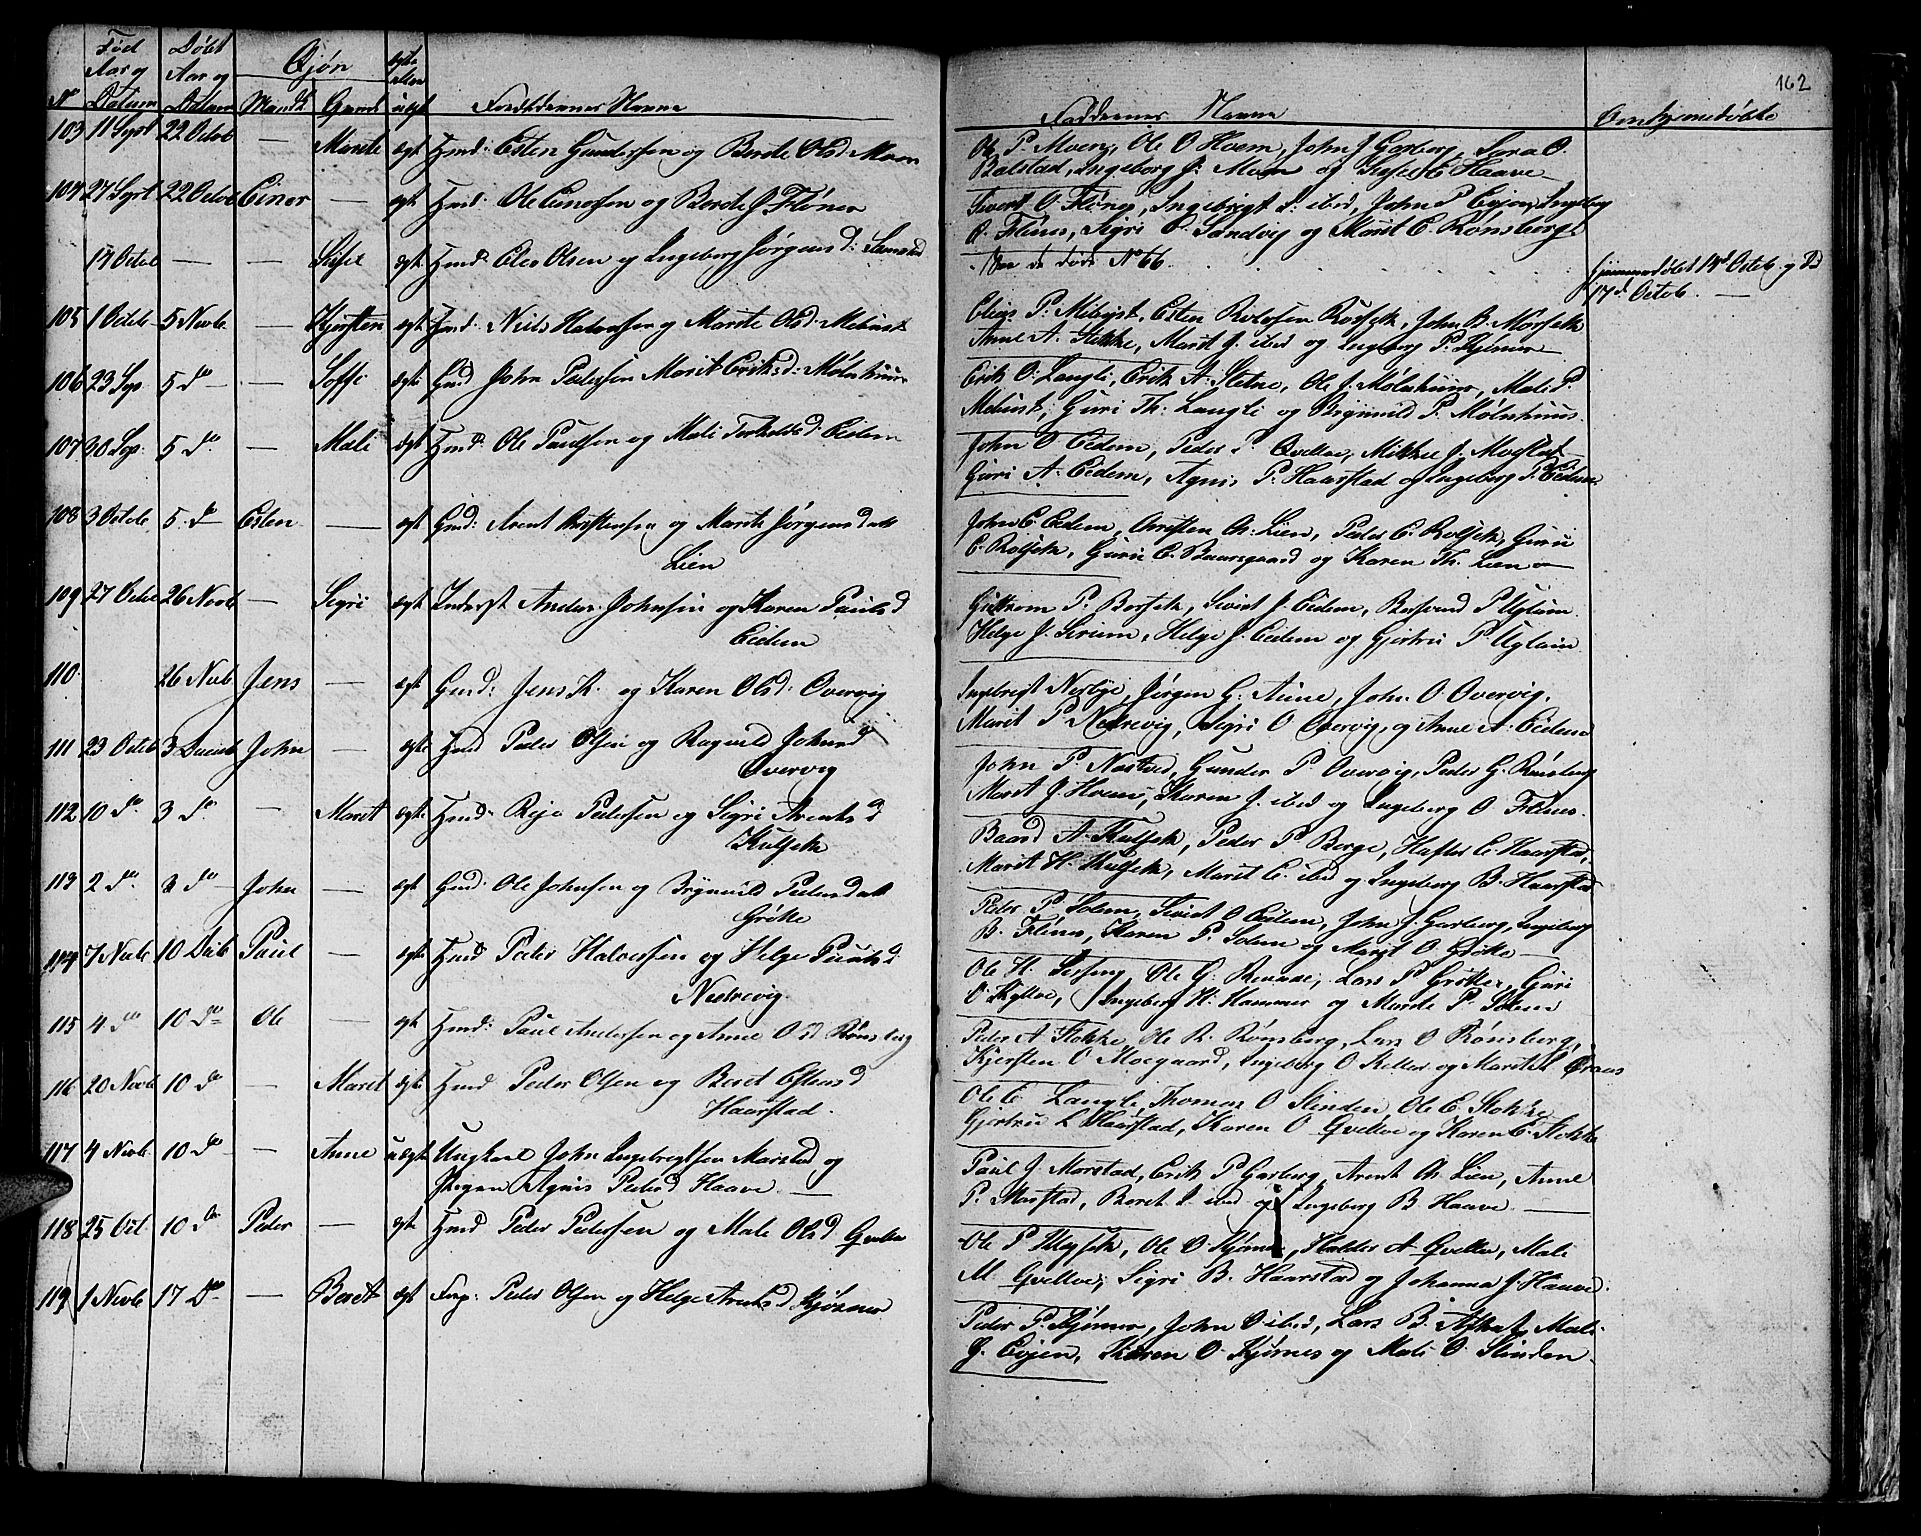 162
Født Aar og Datum
Døbt Aar og Datum
Kjøn
No
Mandk
Forældrenes Navne
Faddernes Navne
Om hjemedøbte
103 11 Sept 22 Octob — Marite ægt Hmd: Esten Gundersen og Berite Olsd: Moen
Ole P. Moen, Ole O Hoem, John J Garberg, Sora O.
Balstad, Ingeborg J: Moen og E Haave
104 27 Sept 22 Octob Einor — ægt Hmd: Ole Einersen og Berite J. Flønes
Sivert O. Flønes, Ingebrigt d: ibid, John P Evjen, Ingebog
O. Flønes, Sigri O. Sandvig og Marit E. Rønsberg
19 Octob — — ægt Hmd: Ole Olsen og Ingeborg Jørgensd:
Se de døde No 66.
Hjemmedøbt 14d Octob. og Død
17d Octob. —
105 1 Octob 5 Novb — Kjersten ægt Hmd: Niels Halvorsen og Marite Olsd: Mebust
Elias P. Mebust, Esten Rolvsen Rolseth, John B. Morseth
Anne A. Stokke, Marit J. ibid og Ingeborg P. Kjøsnes
106 23 Sep 5 do — Soffi ægt Gmd John Pedersen Marit Eriksd: Mølnhuus
Erik O. Langli, Erik A. Stetne, Ole J. Mølnhuus, Mali P.
Mebust, Guri Th: Langli og Brynnild P. Mølnhuus
107 30 Sep: 5 do — Mali ægt Hmd: Ole Paulsen og Mali Torkelsd: Eidem
John O Eidem, Peder P Qvello, Mikkel J. Morstad
Guri A. Eidem, Agnis P. Haarstad og Ingeborg P. Eidem
108 3 Octob 5 do Esten — ægt Gmd: Arent Christensen og Marit Jørgensdatt
Lien
John E Eidem, Christen Ch: Lien, Peder E. Rolseth, Guru
E. Rolseth, Guru E. Baarsgaard og Karen Th. Lien
109 27 Octob 26 Novb — Sigri ægt Inderst Anders Johnsen og Karen Paulsd
Eidem
Guttorm P. Borseth, Sivert J. Eidem, P Uglum
Helge J. Serum, Helge J. Eidem og Gjertru P Uglum
110. 26 Novb Jens — ægt Gmd: Jens K. og Karen Olsd: Overvig
Ingebrigt Nesbye, Jørgen G. Aune, John O Overvig,
Marit P. Nedrevig, Sigri O Overvig, og Anne A. Eidem
111 23 Octob 3 Decemb John — ægt Hmd Peder Olsen og Ragnild Johnsd
Overvig
John P. Nestved, Gunder P. Overvig, Peder G. Rønsberg
Marit J. Hoem, Karen J. ibid og Ingeborg O Flønes.
112 10 do 3 do — Maret ægt Hmd: Reje Pedersen og Sigri Arentsd
Kulseth
Baard A. Kulseth, Peder P Berge, Hafter C. Haarstad,
Marit H. Kulseth, Marit C. ibid og Ingeborg B. Haarstad
113 2 do 3 do — John — ægt Gmd: Ole Johnsen og Brynnild Pedersdatt
Grøtte
Peder P. Solem, Sivert O Eidem, John J. Garberg, Ingeborg
B. Flønes, Karen P. Solem og Marit O Grøtte —
114 7 Novb 10 Decb Paul — ægt Hmd Peder Halvorsen og Helge Paulsd
Nedrevig.
Ole H. Sesseng, Ole G. Renaae, Lars P Grøtte, Guri
O Kyllo, Ingeborg H. Hammer og Marite P. Solem
115 4 do 10 do Ole — ægt Hmd: Paul Andersen og Anne O sd Rønsberg
Peder A Stokke, Ole R. Rønsberg, Lars O Rønsberg,
Kjersten O Moegaard, Ingeborg O Keller og Marite L Ørans
116 20 Novb 10 do — Maret ægt Hmd Peder Olsen og Beret Estensd
Haarstad.
Ole E Langli, Thomas O Slinden, Ole E. Stokke
Gjertru L Haarstad, Karen O Qvello og Karen E. Stokke
117 4 Novb 10 do — Anne uægt Ungkarl John Ingebrigtsen Morstad og
Pigen Agnis Pedersd Haave —
Paul J. Morstad, Erik P Garberg, Arent Ch. Lien, Anne
P. Morstad, Beret I. ibid og Ingeborg B. Haave —
118 25 Oct 10 do Peder — ægt Hmd Peder Pedersen og Mali Olsd Qvello
Ole P. Kleyseth, Ole O Kjøsnes, Halder A. Qvello, Mali
M. Qvello, Sigri B. Haarstad og Johanna J. Haave.
119 1 Novb 17 do — Beret ægt Peder Olsen og Helge Arentsd Kjøsnes
Peder P. Kjøsnes, John O ibid, Lars B. Aftret, Mali
G. Evjen, Karen O. Kjøsnes og Mali O. Slinden